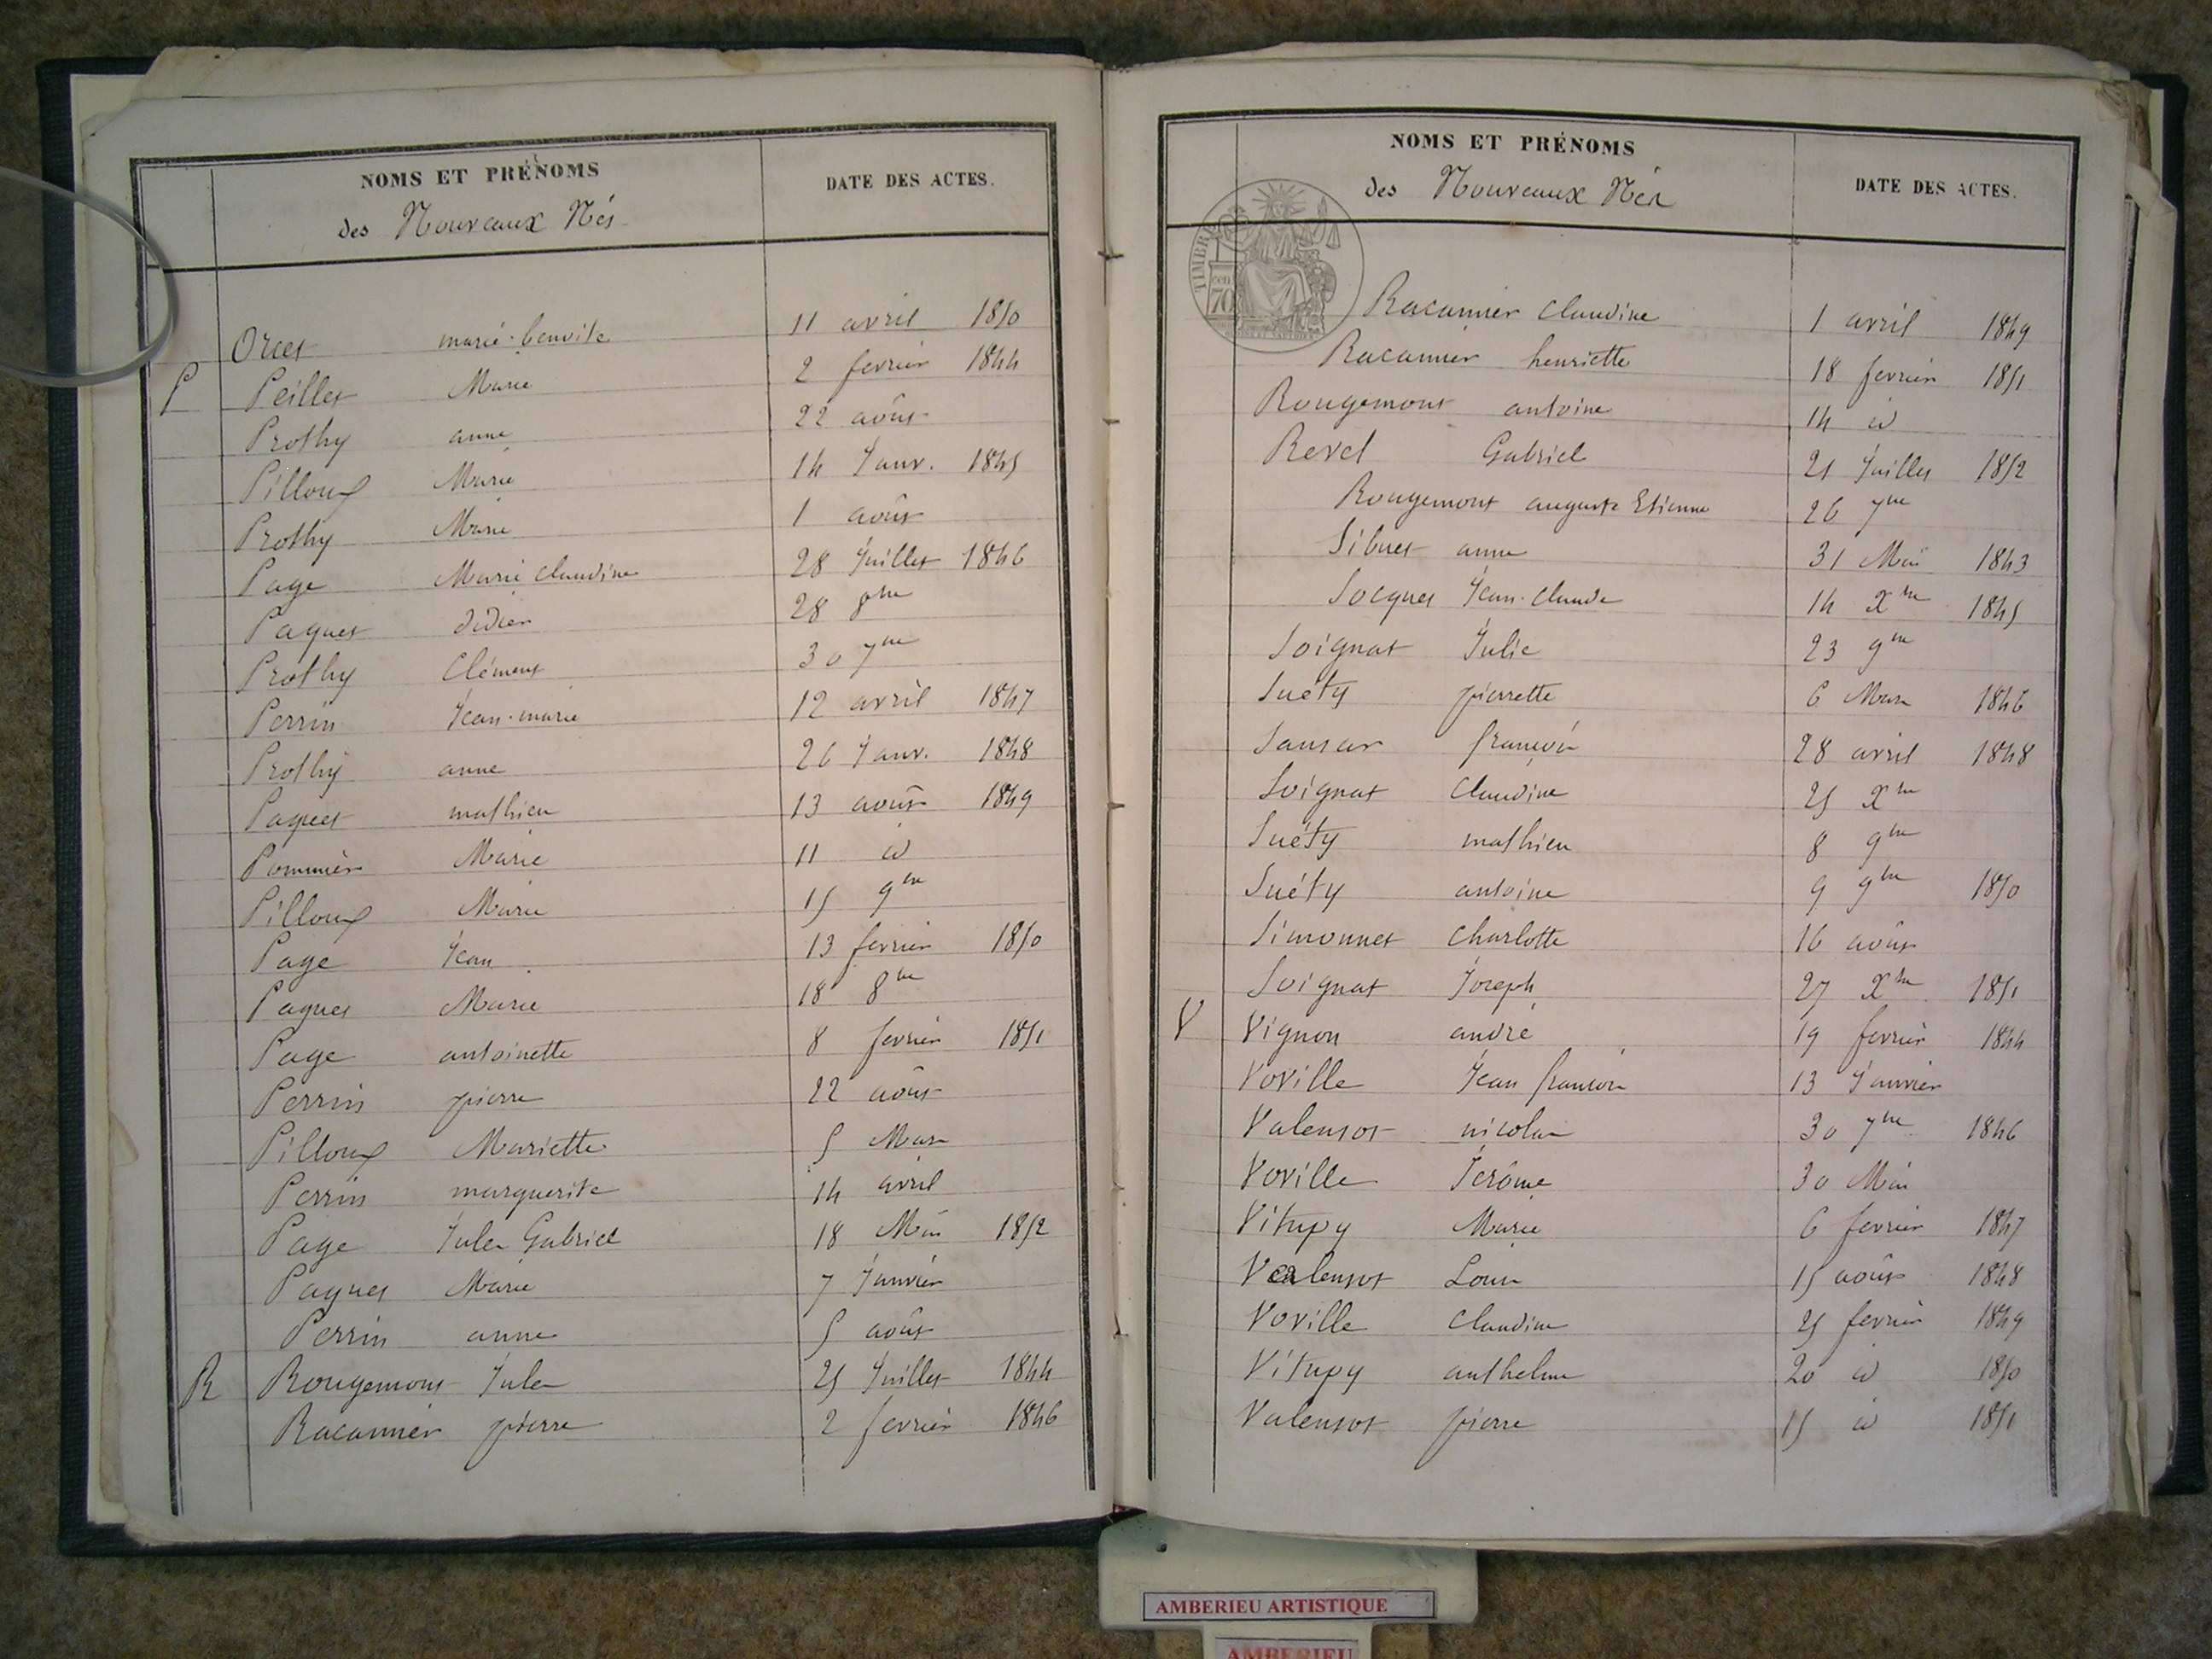 NOMS ET PRÉNOMS
des Nouveaux Nés
DATE DES ACTES.
Orcet marie-benoite 11 avril 1850
P Peillet Marie 2 fevrier 1844
Prothy anne 22 août
Pilloux Marie 14 Janv. 1845
Prothy Marie 1 août
Page Marie claudine 28 Juillet 1846
Paquet didier 28 8bre
Prothy Clément 30 7bre
Perrin Jean-marie 12 avril 1847
Prothy anne 26 Janv. 1848
Paquet mathieu 13 août 1849
Pommier Marie 11 id
Pilloux Marie 15 9bre
Page Jean 13 fevrier 1850
Paquet Marie 18 8bre
Page antoinette 8 fevrier 1851
Perrin pierre 22 août
Pilloux Mariette 5 Mars
Perrin marguerite 14 avril
Page Jules Gabriel 18 Mai 1852
Paquet Marie 7 Janvier
Perrin anne 5 août
R Rougemont Jules 25 Juillet 1844
Racannier pierre 2 fevrier 1846
NOMS ET PRÉNOMS
des Nouveaux Nés
DATE DES ACTES.
TIMBRE
70
Racannier claudine 1 avril 1849
Racannier henriette 18 fevrier 1851
Rougemont antoine 14 id
Revel Gabriel 21 Juillet 1852
Rougemont auguste Etienne 26 7bre
Sibuet anne 31 Mai 1843
Socquet Jean-claude 14 Xbre 1845
Soignat Julie 23 9bre
Suéty pierrette 6 Mars 1846
françois 28 avril 1848
Soignat Claudine 25 Xbre
Suéty mathieu 8 9bre
Suéty antoine 9 9bre 1850
Simonnet charlotte 16 août
Soignat Joseph 27 Xbre 1851
V Vignon andré 19 fevrier 1844
Voville Jean françois 13 Janvier
Valensot nicolas 30 7bre 1846
Voville Jerôme 30 Mai
Vitupy Marie 6 fevrier 1847
Valensot Louis 15 août 1848
Voville Claudine 25 fevrier 1849
Vitupy anthelme 20 id 1850
Valensot pierre 15 id 1851
AMBERIEU ARTISTIQUE
AMBERIEU